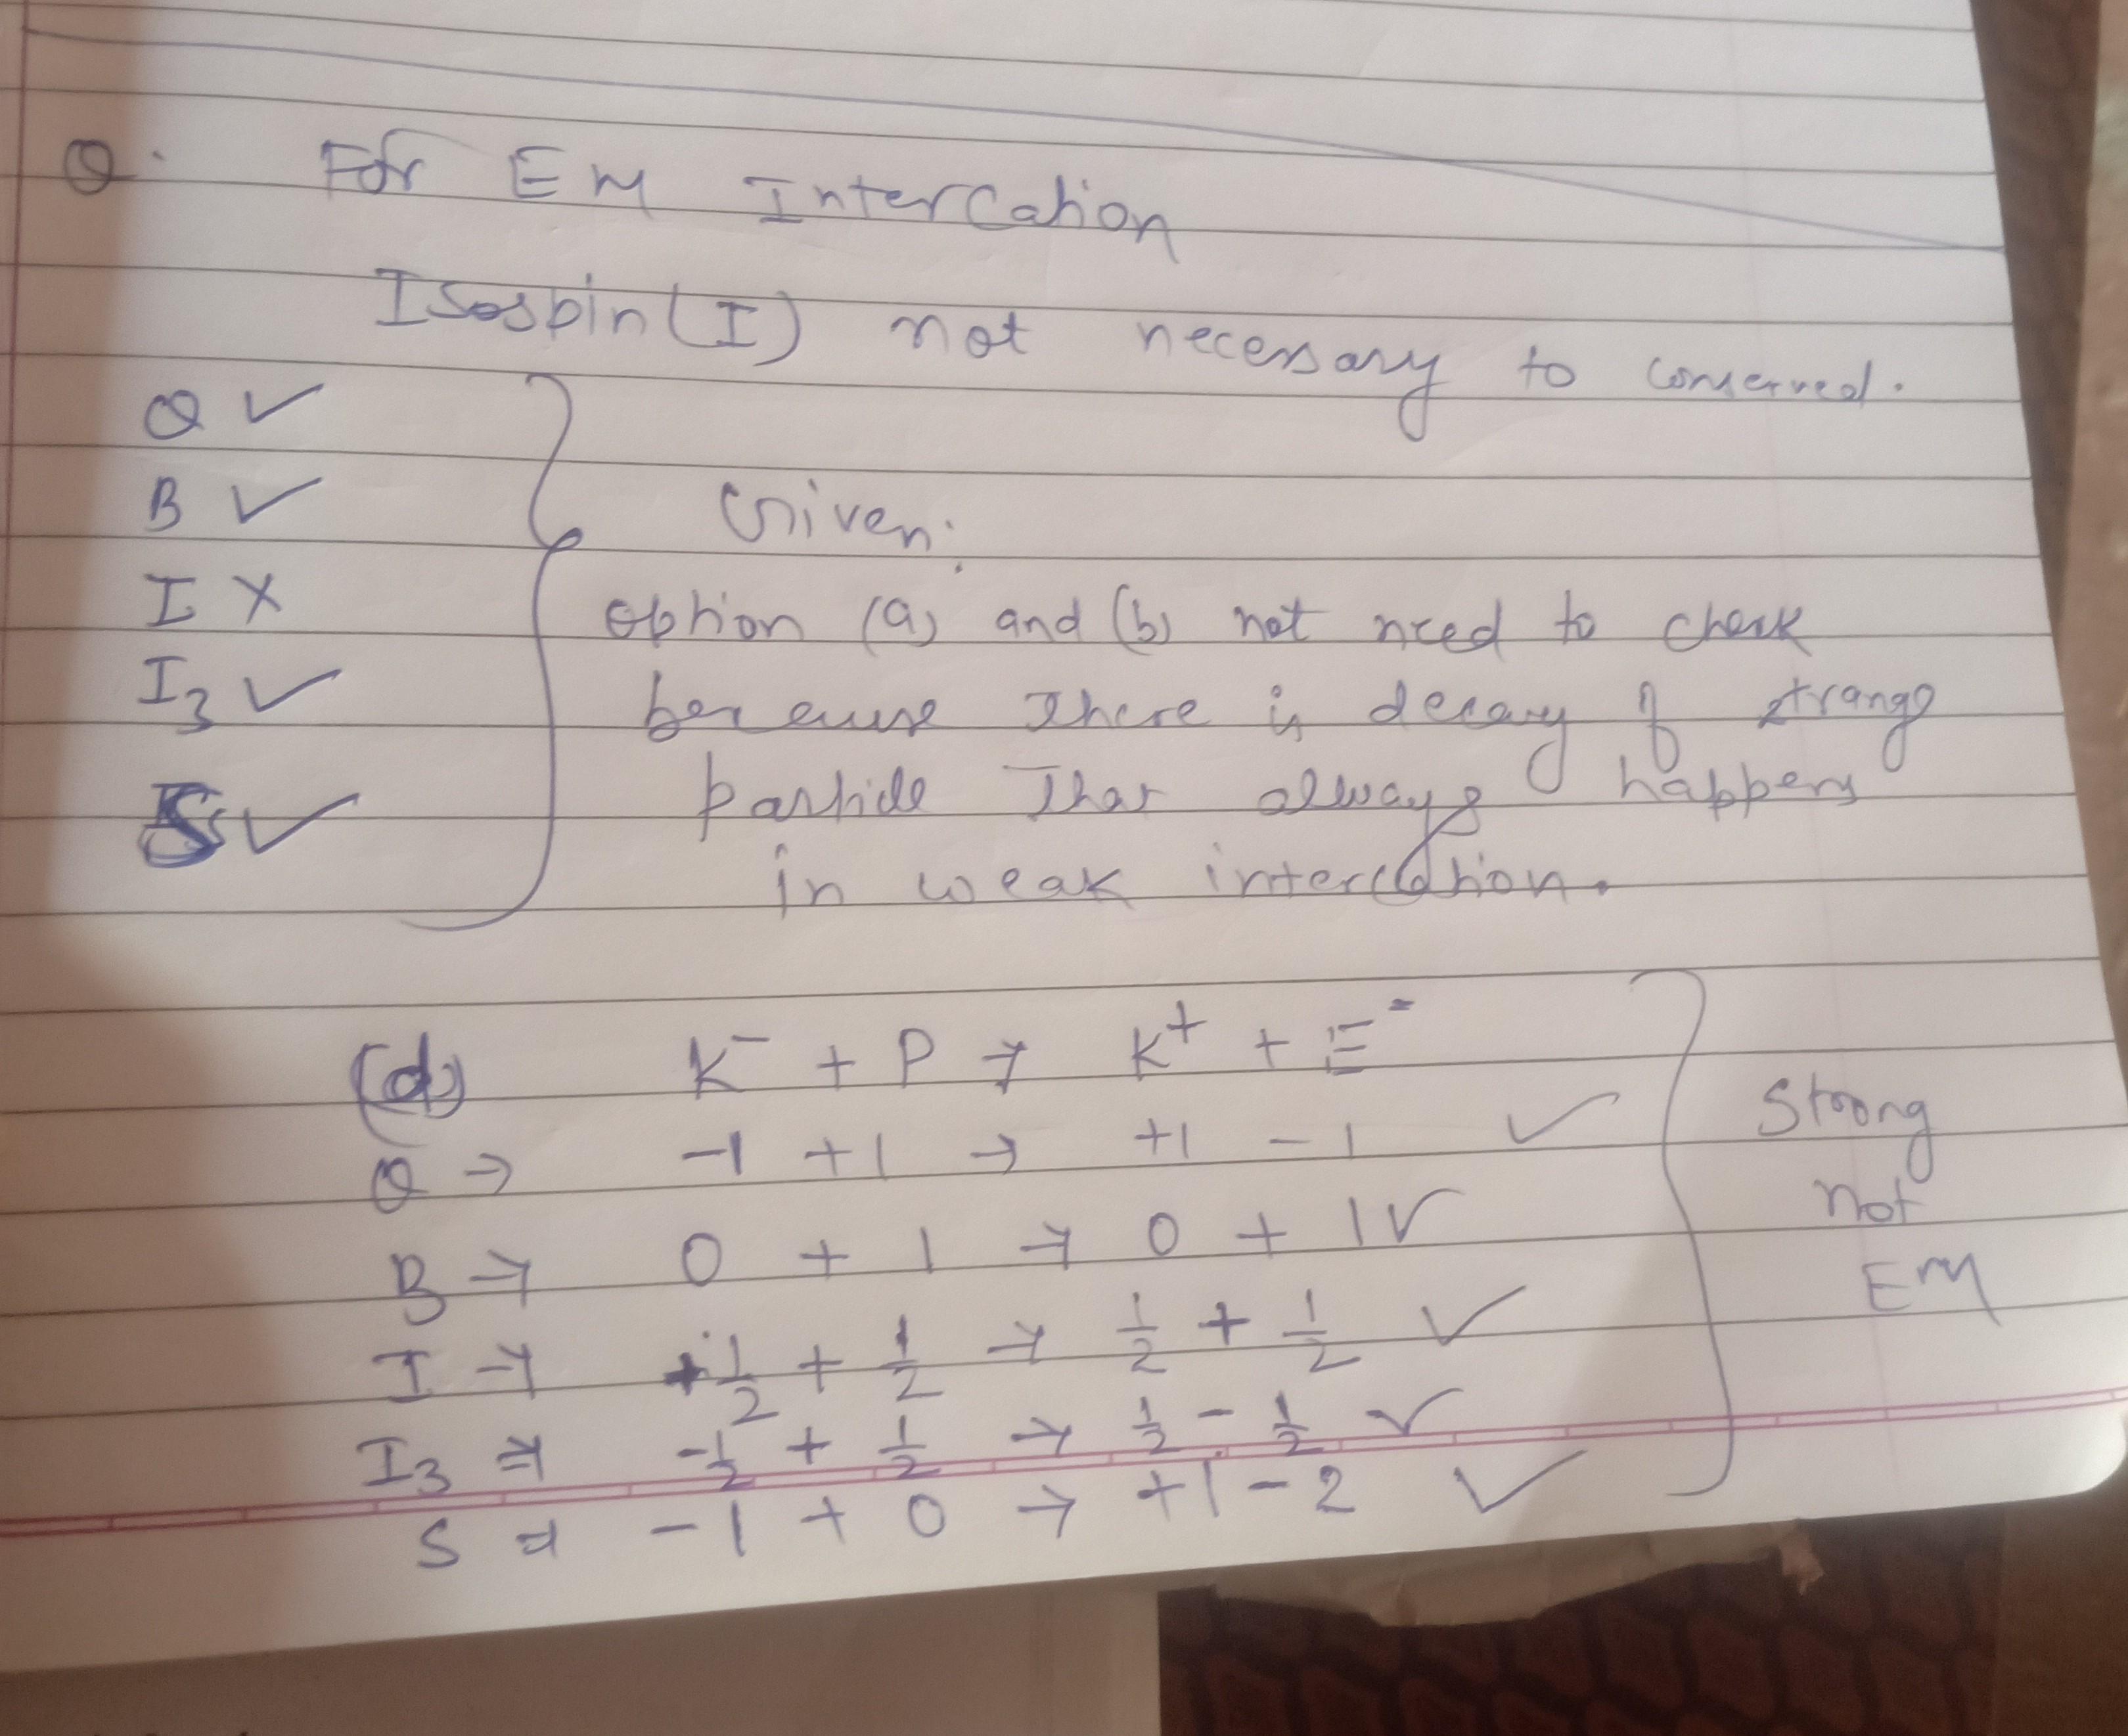 Q. For EM Intercation
Isospin(I) not necessary to conserved.
Q ✓
B ✓
I ×
I₃ ✓
S ✓
Given:
option (a) and (b) not need to check
because there is decay of strange
particle that always happens
in weak intercation.
(d) K⁻ + P → K⁺ + Ξ⁻
Q → -1 +1 → +1 -1 ✓
B → 0 + 1 → 0 + 1 ✓
I → +1/2 + 1/2 → 1/2 + 1/2 ✓
I₃ ⇒ -1/2 + 1/2 → 1/2 - 1/2 ✓
S ⇒ -1 + 0 → +1 -2 ✓
Strong
not
EM